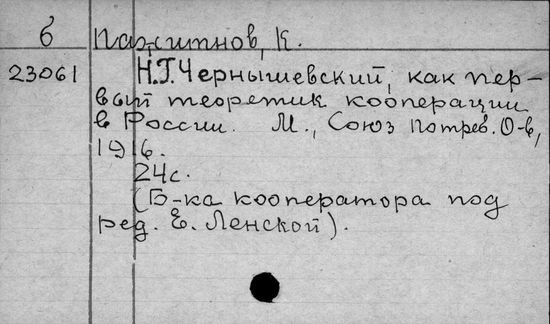 б Пажитнов, К.
23061 Н.Г.Чернышевский, как пер-
вый теоретик кооперации
в России. М., Союз потреб. О-в,
1916.
24с.
(Б-ка кооператора под
ред. Е. Ленской).